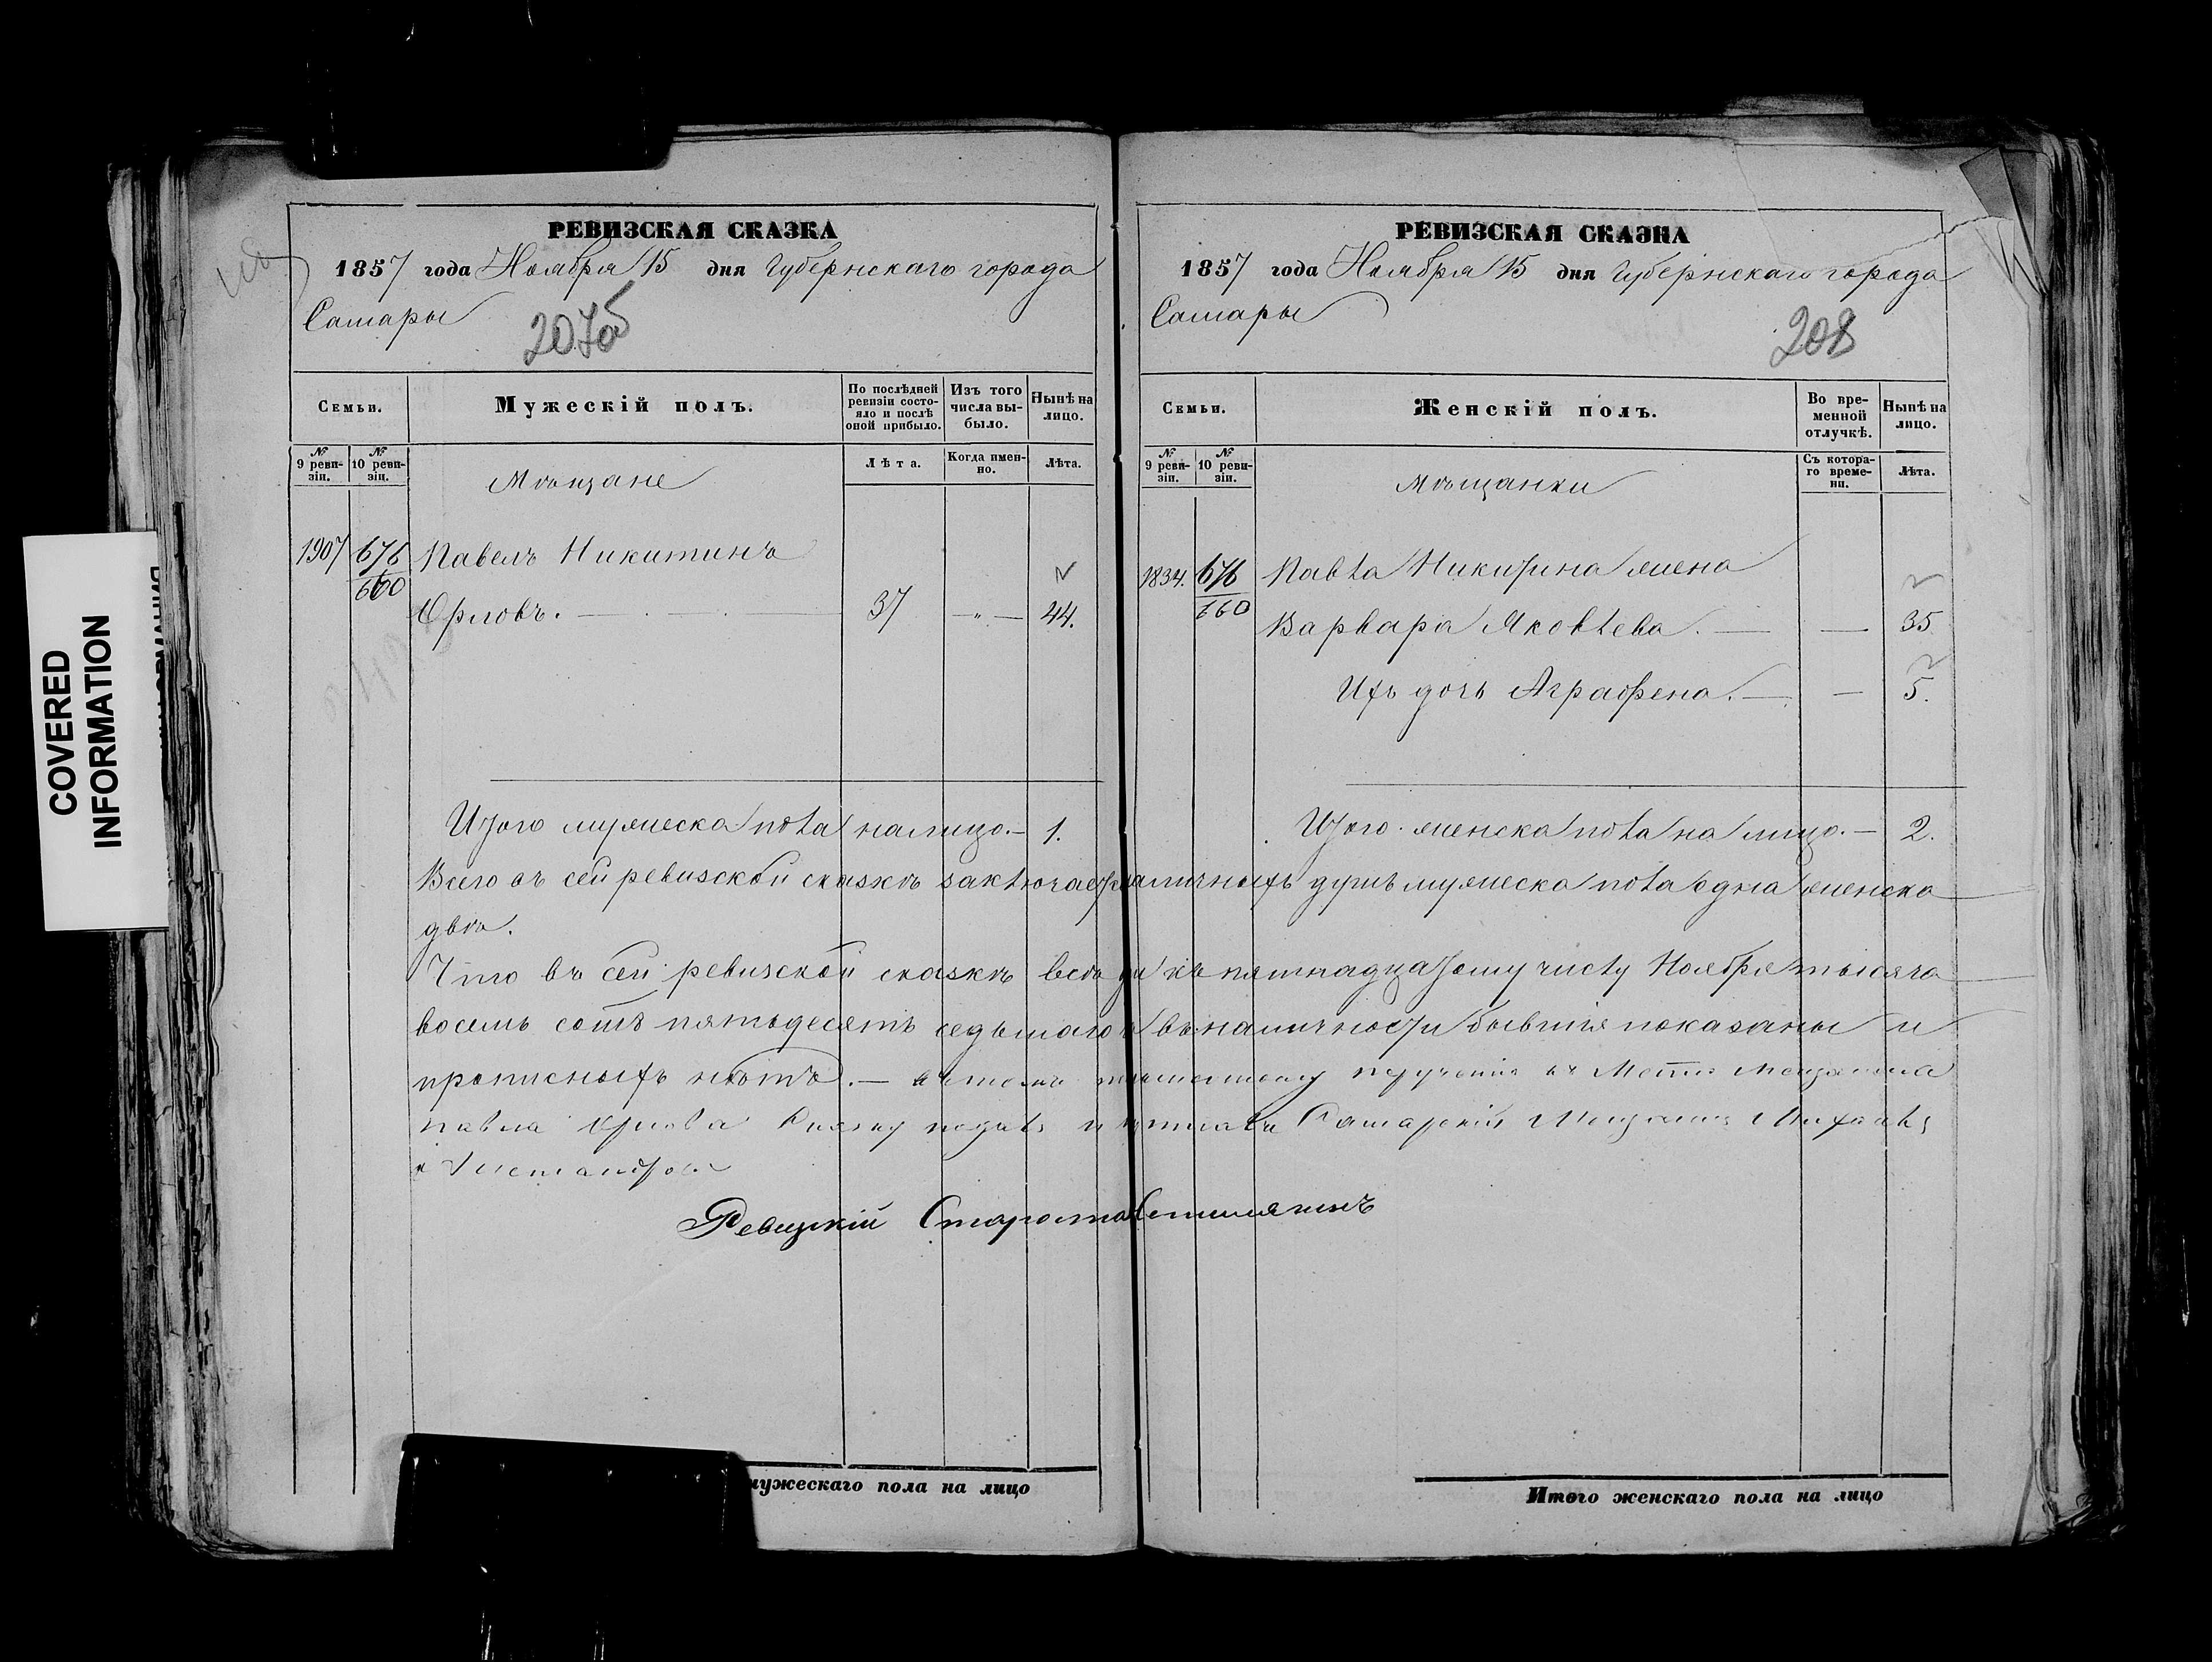 РЕВИЗСКАЯ СКАЗКА
1857 года Ноября 15 дня Губернскаго города
Самары
207об
Семьи.
Мужескій полъ.
По послѣдней ревизіи состояло и послѣ оной прибыло.
Изъ того числа выбыло.
Нынѣ на лицо.
№ 9 ревизіи.
№ 10 ревизіи.
Мѣщане
Лѣта.
Когда именно.
Лѣта.
1907 676 Павелъ Никитинъ
660 Орловъ. 37 — " — 44.
Итого мужеска пола налицо. 1.
РЕВИЗСКАЯ СКАЗКА
1857 года Ноября 15 дня Губернскаго города
Самары
208
Семьи.
Женскій полъ.
Во временной отлучкѣ.
Нынѣ на лицо.
№ 9 ревизіи.
№ 10 ревизіи.
Мѣщанки
Съ котораго времени.
Лѣта.
1834. 676 Павла Никитина жена
660 Варвара Яковлева. — — 35
Ихъ дочь Аграфена. — — 5.
Итого женска пола на лицо. — 2.
Всего въ сей ревизской сказкѣ заключается наличныхъ душъ мужеска пола одна женска
двѣ.
Что въ сей ревизской сказкѣ всѣ къ пятнадцатому числу Ноября тысяча
восемь сотъ пятьдесятъ седьмаго въ наличности бывшія показаны и
прописныхъ нѣтъ. —
Павла Орлова Сказку подалъ и Самарскій Мѣщанинъ
Ревизкій Староста
мужескаго пола на лицо
Итого женскаго пола на лицо
COVERED
INFORMATION